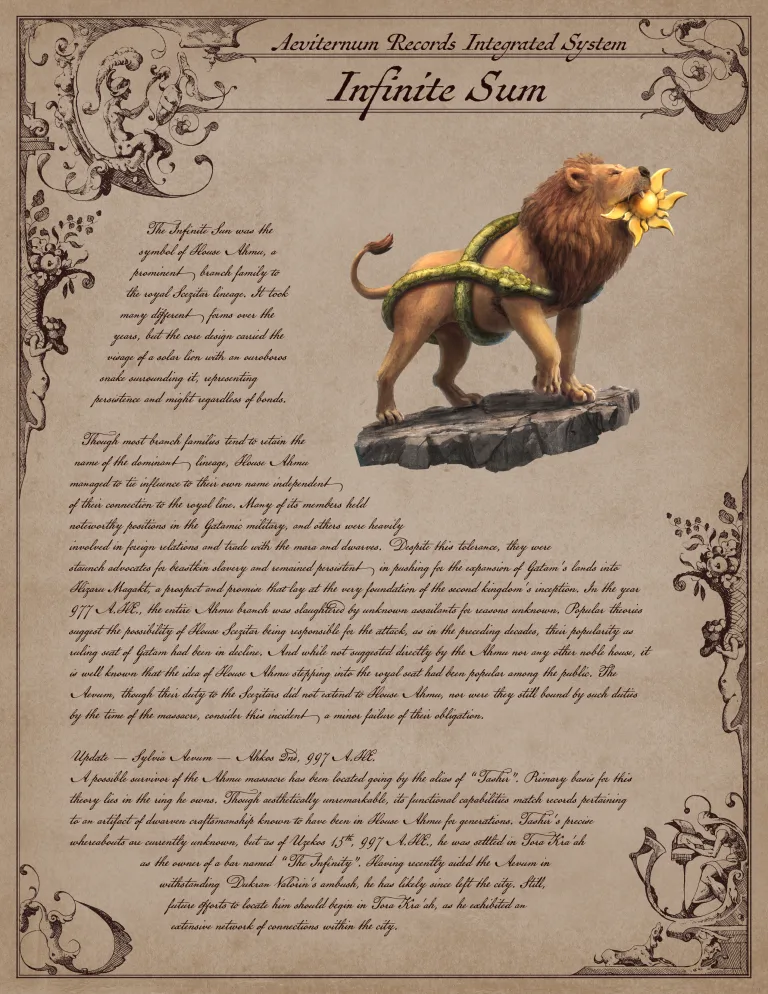 Aeviternum Records Integrated System
Infinite Sum
The Infinite Sun was the
symbol of House Ahmu, a
prominent branch family to
the royal Scezitar lineage. It took
many different forms over the
years, but the core design carried the
visage of a solar lion with an ouroboros
snake surrounding it, representing
persistence and might regardless of bonds.
Though most branch families tend to retain the
name of the dominant lineage, House Ahmu
managed to tie influence to their own name independent
of their connection to the royal line. Many of its members held
noteworthy positions in the Gatamic military, and others were heavily
involved in foreign relations and trade with the mara and dwarves. Despite this tolerance, they were
staunch advocates for beastkin slavery and remained persistent in pushing for the expansion of Gatam's lands into
Hizaru Magakt, a prospect and promise that lay at the very foundation of the second kingdom's inception. In the year
977 A.HE., the entire Ahmu branch was slaughtered by unknown assailants for reasons unknown. Popular theories
suggest the possibility of House Scezitar being responsible for the attack, as in the preceding decades, their popularity as
ruling seat of Gatam had been in decline. And while not suggested directly by the Ahmu nor any other noble house, it
is well known that the idea of House Ahmu stepping into the royal seat had been popular among the public. The
Aevum, though their duty to the Scezitars did not extend to House Ahmu, nor were they still bound by such duties
by the time of the massacre, consider this incident a minor failure of their obligation.
Update — Sylvia Aevum — Ahkos 2nd, 997 A.HE.
A possible survivor of the Ahmu massacre has been located going by the alias of "Tashir". Primary basis for this
theory lies in the ring he owns. Though aesthetically unremarkable, its functional capabilities match records pertaining
to an artifact of dwarven craftsmanship known to have been in House Ahmu for generations. Tashir's precise
whereabouts are currently unknown, but as of Uzekos 15th, 997 A.HE., he was settled in Tora Kra'ah
as the owner of a bar named "The Infinity". Having recently aided the Aevum in
withstanding Dukran Valorin's ambush, he has likely since left the city. Still,
future efforts to locate him should begin in Tora Kra'ah, as he exhibited an
extensive network of connections within the city.